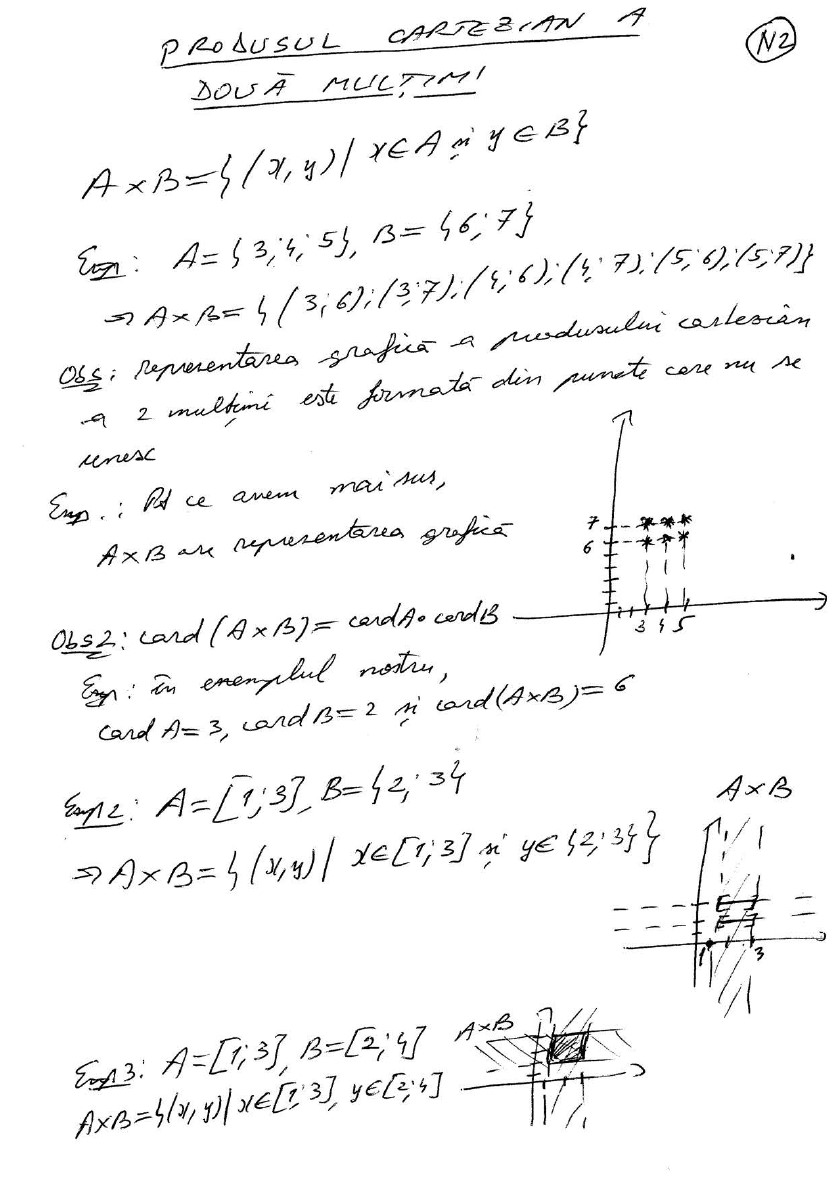 PRODUSUL CARTEZIAN A
N2
DOUĂ MULȚIMI
A×B={(x,y)| x∈A și y∈B}
Exp: A={3;4;5}, B={6;7}
⇒ A×B={(3;6);(3;7);(4;6);(4;7);(5;6);(5;7)}
Obs: reprezentarea grafică a produsului cartezian
a 2 mulțimi este formată din puncte care nu se
unesc
Exp.: Pt ce avem mai sus,
A×B are reprezentarea grafică
7
6
3 4 5
Obs2: card(A×B)=cardA•cardB
Exp: în exemplul nostru,
card A=3, card B=2 și card(A×B)=6
Exp2: A=[1;3], B={2;3}
A×B
⇒ A×B={(x,y)| x∈[1;3] și y∈{2;3}}
1 3
Exp3: A=[1;3], B=[2;4]
A×B
A×B={(x,y)| x∈[1;3], y∈[2;4]